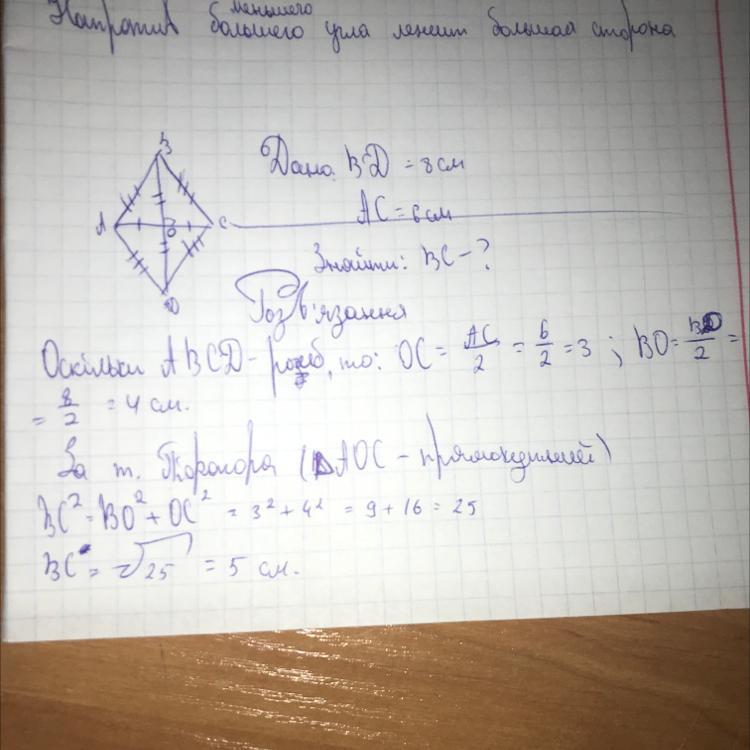 меньшего
Напротив большего угла лежит большая сторона
B
A
O
C
D
Дано: BD = 8 см
AC = 6 см
Знайти: BC - ?
Розв'язання
Оскільки ABCD - ромб, то: OC = AC/2 = 6/2 = 3 ; BO = BD/2 =
= 8/2 = 4 см.
За т. (ΔAOC - прямокутний)
BC² = BO² + OC² = 3² + 4² = 9 + 16 = 25
BC = √25 = 5 см.